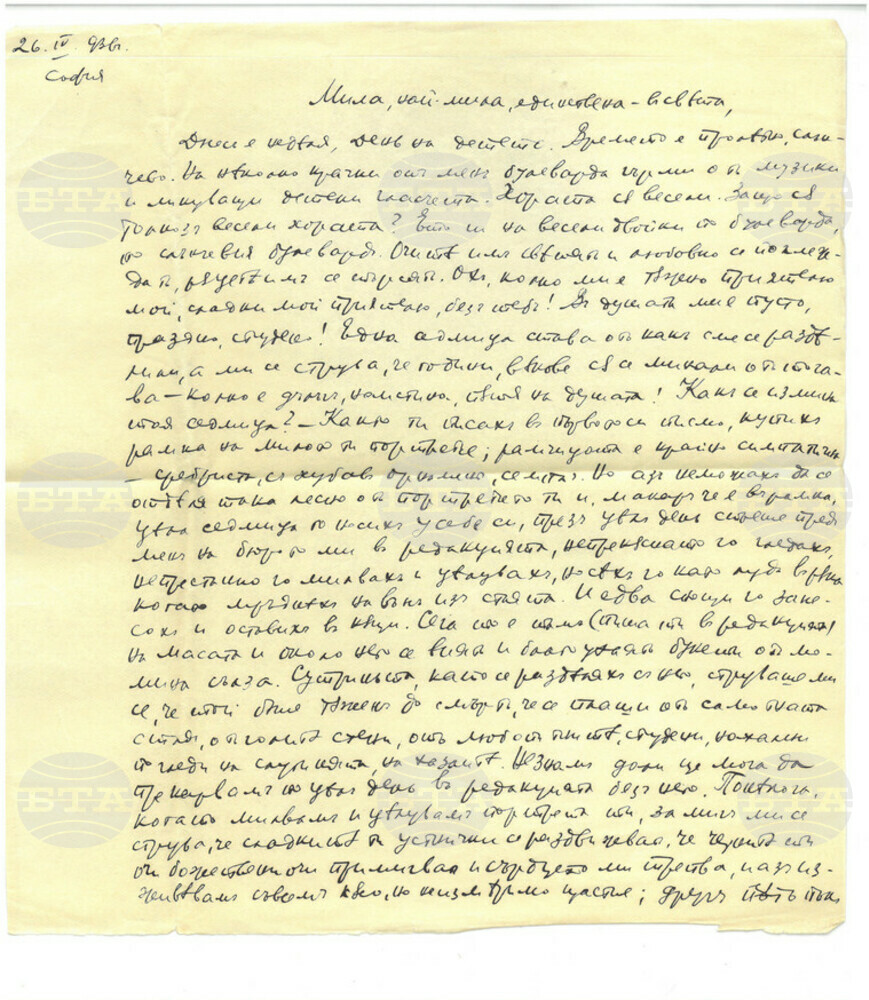 26. IV. 931г.
София
Мила, най-мила, единствена – в света,
Днесъ е неделя, день на детето. Времето е пролѣтно, слън-
чево. На нѣколко крачки отъ менъ булеварда гърми отъ музики
и ликуващи детски гласчета. Хората сѫ весели. Защо сѫ
толкозъ весели хората? Ето ги на весели двойки по булеварда,
по слънчевия булевардъ. Очитѣ имъ свѣтятъ и любовно се поглеж-
датъ, рѫцетѣ имъ се търсятъ. Охъ, колко ми е тѫжно приятелю
мой, сладки мой приятелю, безъ тебъ! Въ душата ми е пусто,
празно, студено! Една седмица става откакъ сме се раздѣ-
лили, а ми се струва, че години, вѣкове сѫ се минали отъ тога-
ва – колко е дълъгъ, наистина, пѫтя на душата! Какъ се измина
тая седмица? – Както ти писахъ въ първото си писмо, купихъ
рамка на милото ти портретче; рамчицата е крайно симпатична
– сребриста, съ хубавъ орнаментъ, Но азъ неможахъ да се
отдѣля така лесно отъ портретчето ти и, макаръ че е въ рамка,
цѣла седмица го носихъ у себе си, презъ цѣлъ день стоеше предъ
менъ на бюрото ми въ редакцията, непрекѫснато го гледахъ,
непрестанно го милвахъ и цѣлувахъ, носѣхъ го като луда въ рѫка
когато мръднѣхъ навънъ изъ стаята. И едва снощи го зане-
сохъ и оставихъ въ кѫщи. Сега то е тамо (пиша ти въ редакцията)
на масата и около него се виятъ и благоухаятъ букети отъ мо-
мина сълза. Сутриньта, като се раздѣляхъ съ него, струваше ми
се, че той бѣше тѫженъ до смърть, че се плаши отъ самотната
стая, отъ голитѣ стени, отъ любопитнитѣ, студени, нахални
погледи на слугинята, на хазаитѣ. Незнамъ дали ще мога да
прекарвамъ по цѣлъ день въ редакцията безъ него. Понѣкога,
когато милвамъ и цѣлувамъ портрета ти, за мигъ ми се
струва, че сладкитѣ ти устнички се раздвижватъ, че чернитѣ ти
очи божествени очи примигватъ и сърдцето ми трепва, и азъ из-
живѣвамъ съвсемъ кѫсо, но неизмѣримо щастие; другъ пѫть пъкъ